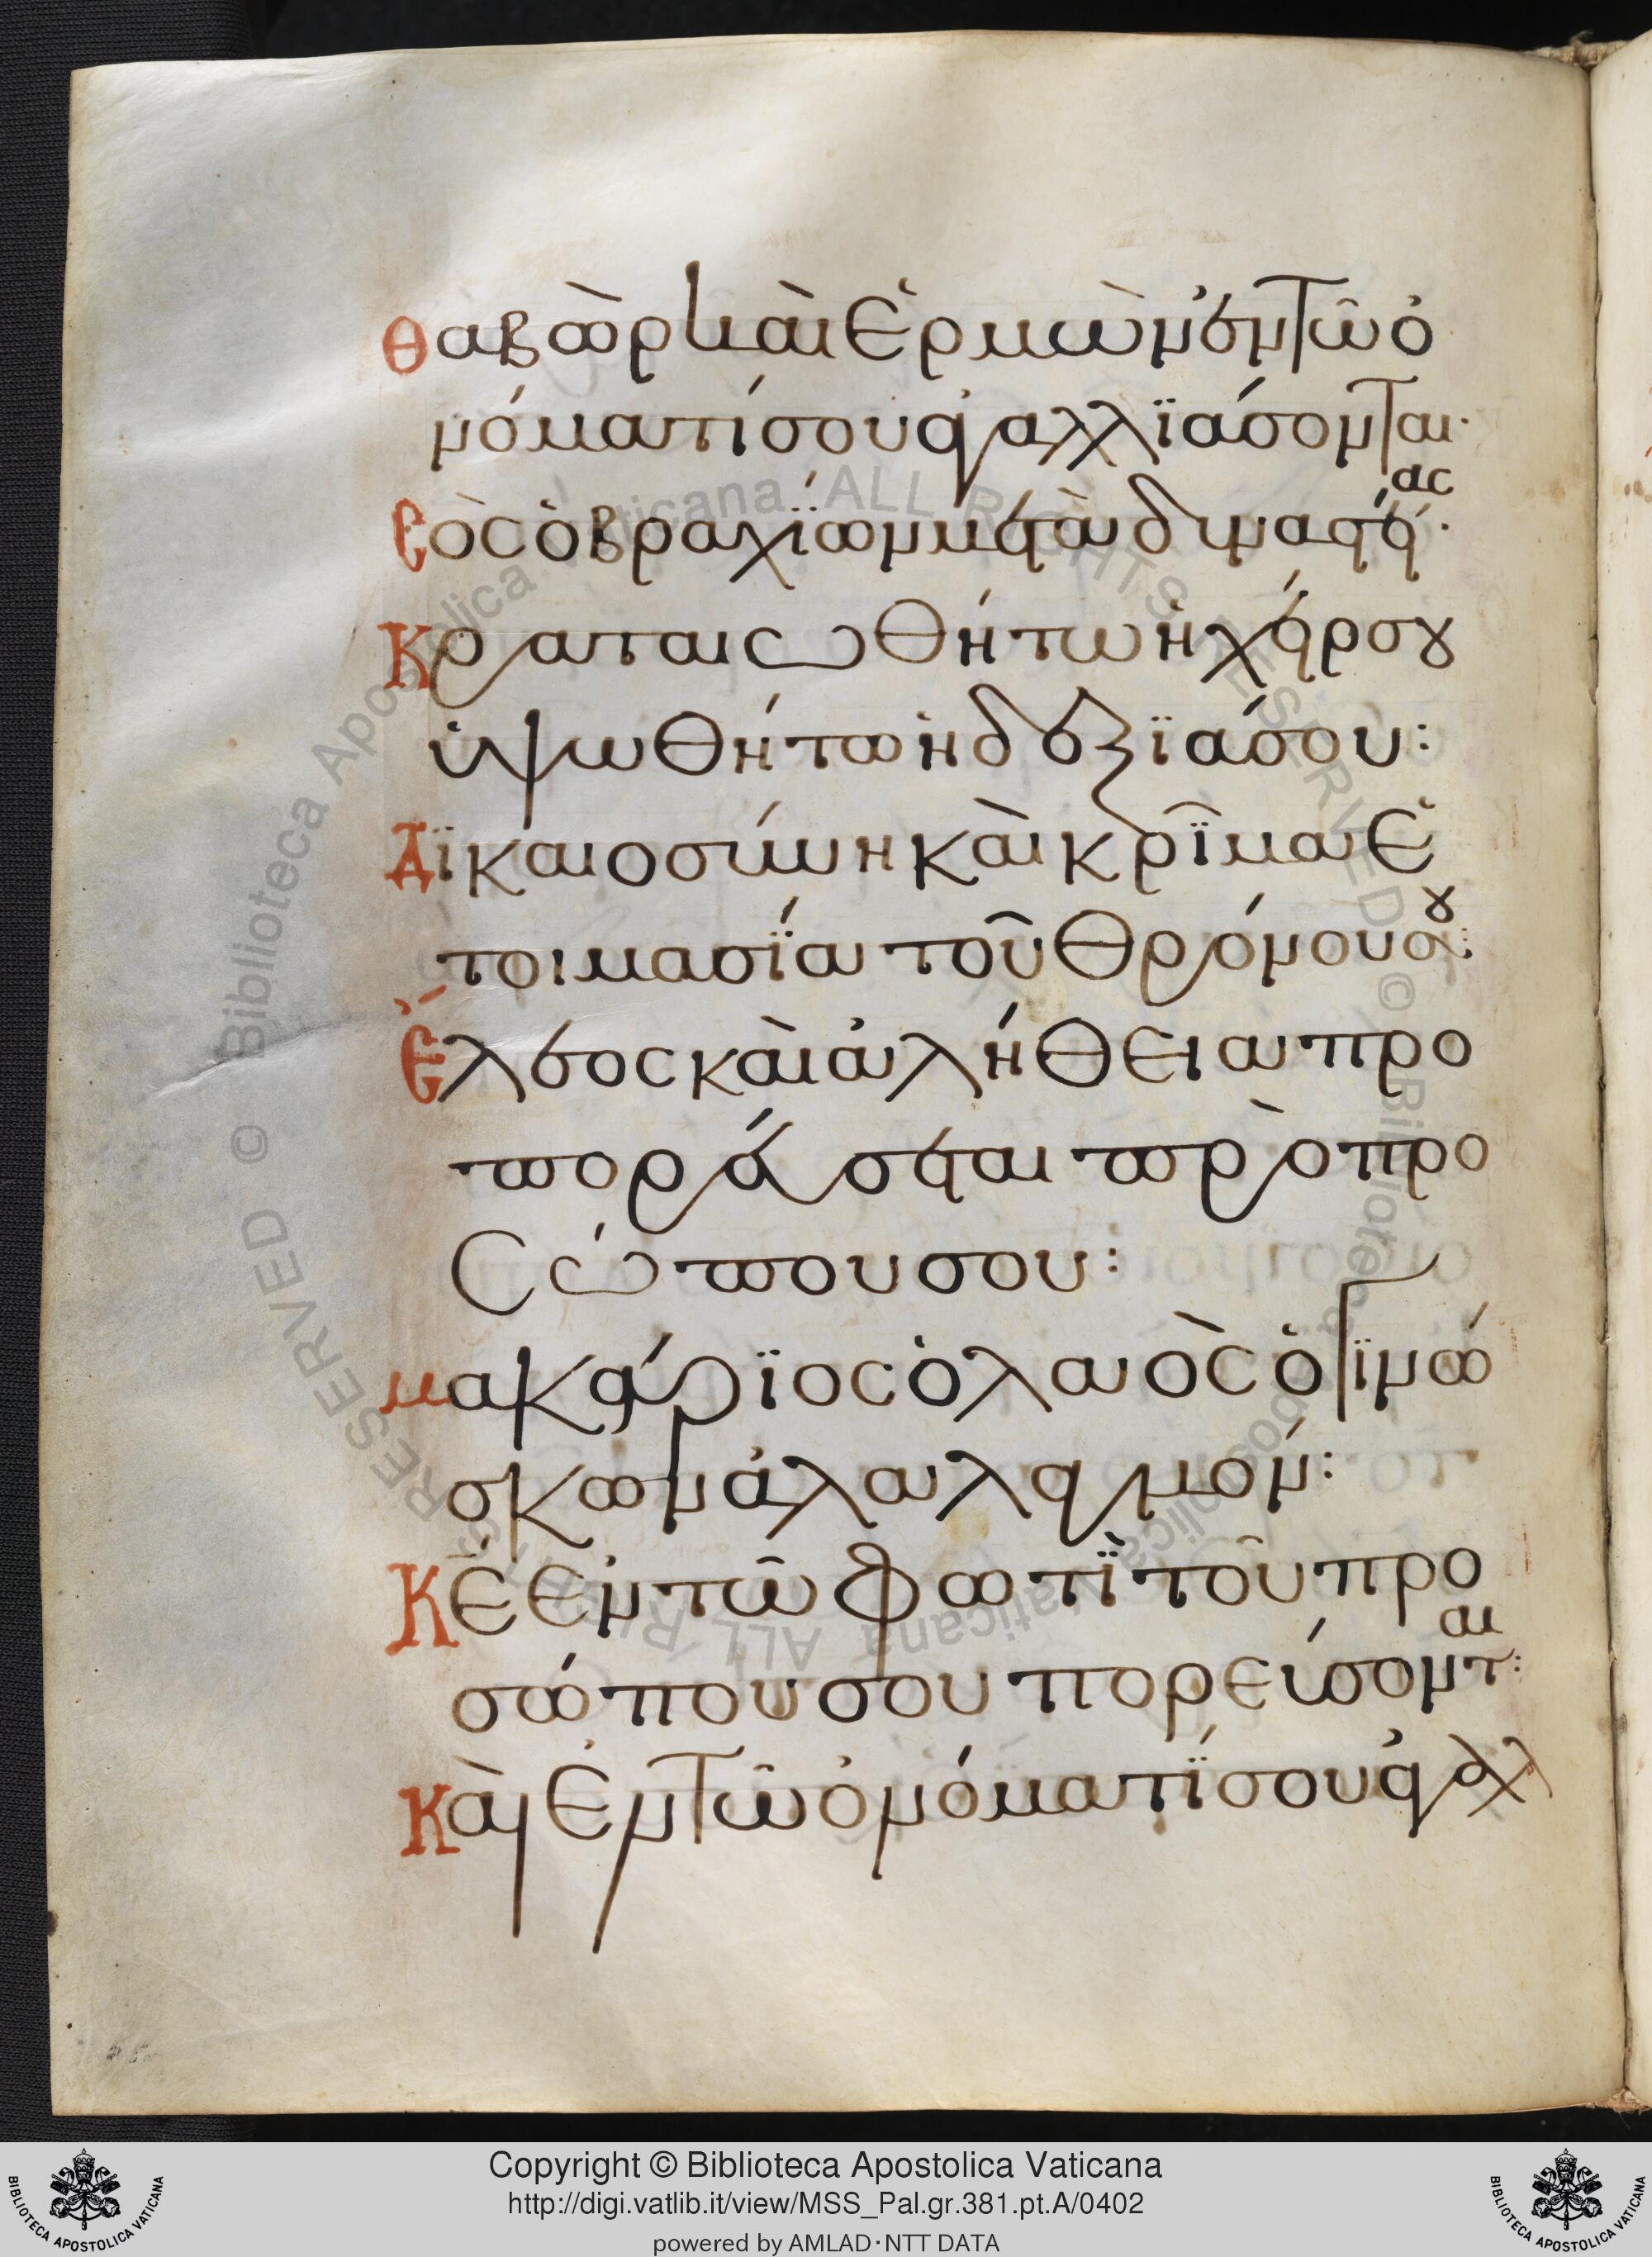 θαβὼρ καὶ ἑρμὼν ἐν τῶ ὀ
νόματί σου ἀγαλλϊάσονται·
σὸς ὁ βραχΐων μετὰ δυναστεί ας·
Κραταιωθήτω ἡ χείρ σου
ὑψωθήτω ἡ δεξϊά σου:
Δϊκαιοσύνη καὶ κρῖμα ἑ
τοιμασΐα τοῦ θρόνου σου:
Ἔλεος καὶ ἀλήθεια προ
πορεύσεται πρὸ προ
σώπου σου:
μακάρϊος ὁ λαὸς ὁ γϊνώ
σκων ἀλαλαγμόν:
Κε ἐν τῶ φωτῒ τοῦ προ
σώπου σου πορεύσονται:
Καὶ ἐν τῶ ὀνόματΐ σου ἀγαλ
Copyright © Biblioteca Apostolica Vaticana
http://digi.vatlib.it/view/MSS_Pal.gr.381.pt.A/0402
powered by AMLAD·NTT DATA